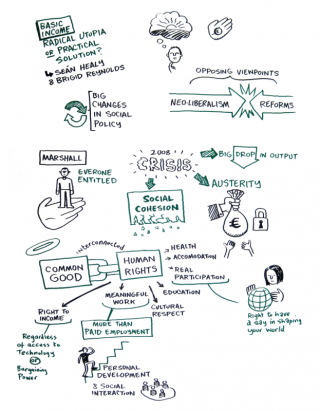 BASIC
INCOME
RADICAL UTOPIA
OR PRACTICAL
SOLUTION?
SEÁN HEALY
& BRIGID REYNOLDS
BIG
CHANGES
IN SOCIAL
POLICY
OPPOSING VIEWPOINTS
NEO-LIBERALISM
REFORMS
MARSHALL
EVERONE
ENTITLED
2008
CRISIS
BIG DROP IN OUTPUT
AUSTERITY
SOCIAL
COHESION
€
interconnected
COMMON
GOOD
HUMAN
RIGHTS
HEALTH
ACCOMODATION
REAL
PARTICIPATION
EDUCATION
CULTURAL
RESPECT
MEANINGFUL
WORK
MORE THAN
PAID EMPLOYMENT
RIGHT TO
INCOME
Regardless
of access to
Technology
or
Bargaining
Power
PERSONAL
DEVELOPMENT
& SOCIAL
INTERACTION
Right to have
a say in shaping
your world